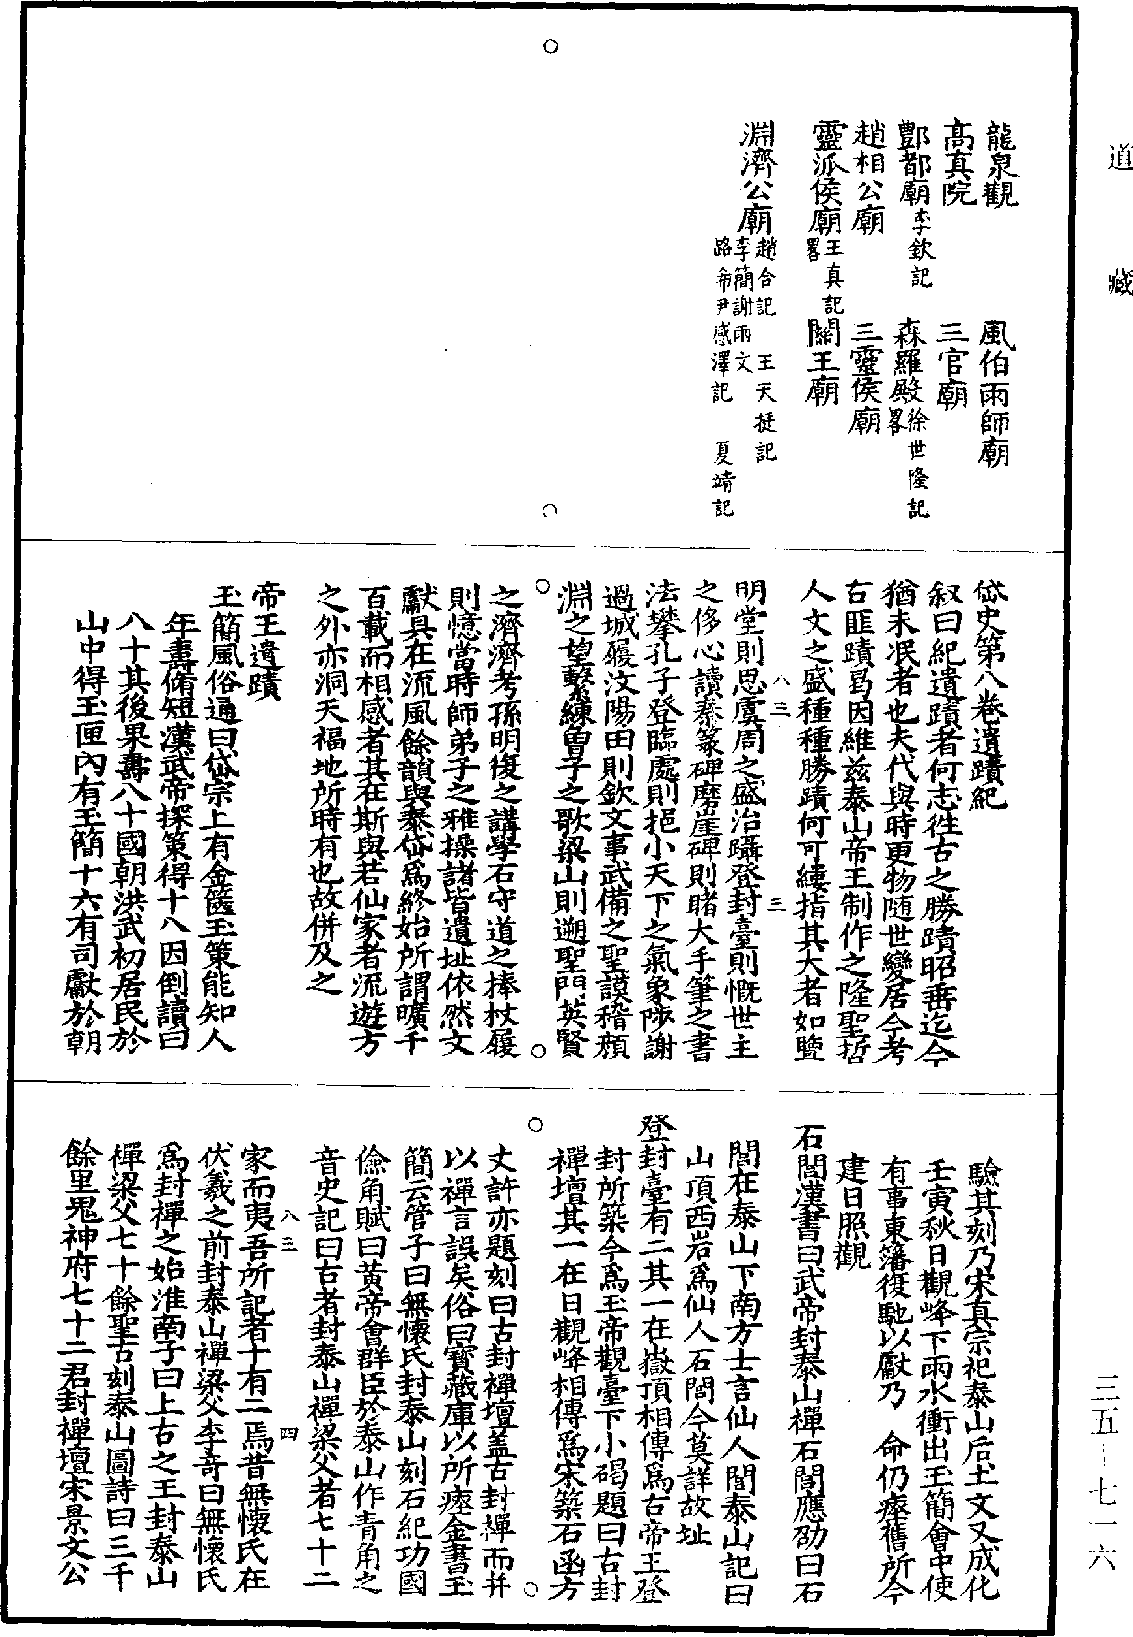 道藏
龍泉觀　風伯雨師廟
高真院　三官廟
酆都廟李欽記　森羅殿徐世隆記畧
趙相公廟　三靈侯廟
靈派侯廟王真記畧　關王廟
淵濟公廟趙合記　王天挺記
李簡謝雨文
路希尹感澤記　夏靖記
岱史第八卷遺蹟紀
叙曰紀遺蹟者何志徃古之勝蹟昭垂迄今
猶未泯者也夫代與時更物随世變居今考
古匪蹟曷因維兹泰山帝王制作之隆聖哲
人文之盛種種勝蹟何可縷指其大者如覽
八三　三
明堂則思虞周之盛治躡登封臺則慨世主
之侈心讀秦篆碑磨崖碑則睹大手筆之書
法攀孔子登臨處則挹小天下之氣象陟謝
過城履汶陽田則欽文事武備之聖謨稽顏
淵之望繫練曽子之歌梁山則遡聖門英賢
之濟濟考孫明復之講學石守道之捧杖履
則憶當時師弟子之雅操諸皆遺址依然文
獻具在流風餘韻與泰岱爲終始所謂曠千
百載而相感者其在斯與若仙家者流遊方
之外亦洞天福地所時有也故併及之
帝王遺蹟
玉簡風俗通曰岱宗上有金篋玉策能知人
年壽脩短漢武帝探策得十八因倒讀曰
八十其後果壽八十國朝洪武初居民於
山中得玉匣內有玉簡十六有司獻於朝
驗其刻乃宋真宗祀泰山后土文又成化
壬寅秋日觀峰下雨水衝出玉簡會中使
有事東藩復馳以獻乃　命仍瘞舊所今
建日照觀
石閭漢書曰武帝封泰山禪石閭應劭曰石
閭在泰山下南方士言仙人閭泰山記曰
山頂西岩爲仙人石閭今莫詳故址
登封臺有二其一在嶽頂相傳爲古帝王登
封所築今爲玉帝觀臺下小碣題曰古封
禪壇其一在日觀峰相傳爲宋築石函方
丈許亦題刻曰古封禪壇蓋古封禪而并
以禪言誤矣俗曰寶藏庫以所瘞金書玉
簡云管子曰無懷氏封泰山刻石紀功國
儉角賦曰黃帝會群臣於泰山作青角之
音史記曰古者封泰山禪梁父者七十二
八三　四
家而夷吾所記者十有二焉昔無懷氏在
伏羲之前封泰山禪梁父李奇曰無懷氏
爲封禪之始淮南子曰上古之王封泰山
禪梁父七十餘聖古刻泰山圖詩曰三千
餘里鬼神府七十二君封禪壇宋景文公
三五—七一六